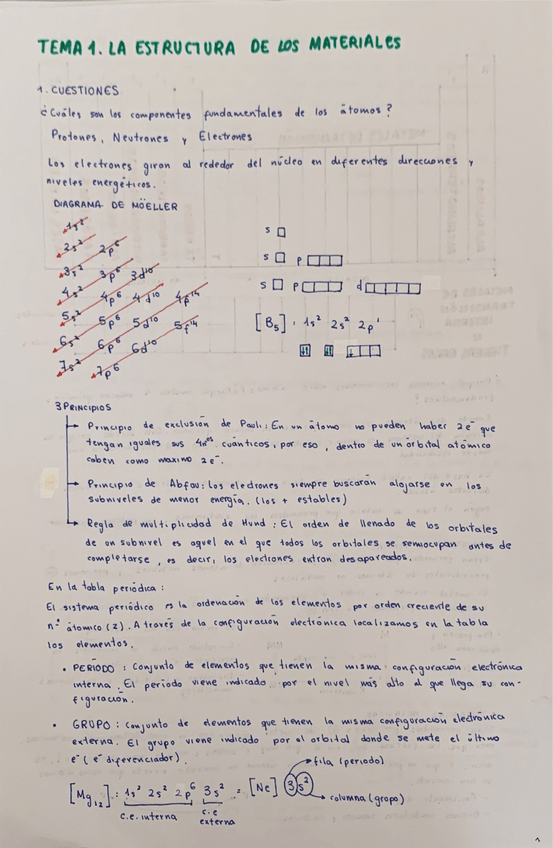 TEMA 1. LA ESTRUCTURA DE LOS MATERIALES
1. CUESTIONES
¿Cuáles son los componentes fundamentales de los átomos?
Protones, Neutrones y Electrones
Los electrones giran al rededor del núcleo en diferentes direcciones y
niveles energéticos.
DIAGRAMA DE MOELLER
1s²
2s² 2p⁶
3s² 3p⁶ 3d¹⁰
4s² 4p⁶ 4d¹⁰ 4f¹⁴
5s² 5p⁶ 5d¹⁰ 5f¹⁴
6s² 6p⁶ 6d¹⁰
7s² 7p⁶
s
s p
s p d
[B₅]: 1s² 2s² 2p¹
3 PRINCIPIOS
Principio de exclusión de Pauli: En un átomo no pueden haber 2e⁻ que
tengan iguales sus 4nᵒˢ cuánticos, por eso, dentro de un órbital atómico
caben como maximo 2e⁻.
Principio de Abfau: Los electrones siempre buscarán alojarse en los
subniveles de menor energía. (los + estables)
Regla de multiplicidad de Hund: El orden de llenado de los orbitales
de un subnivel es aquel en el que todos los orbitales se semiocupan antes de
completarse, es decir, los electrones entran desapareados.
En la tabla periódica:
El sistema periódico es la ordenación de los elementos por orden creciente de su
n° átomico (z). A través de la configuración electrónica localizamos en la tabla
los elementos.
• PERÍODO: Conjunto de elementos que tienen la misma configuración electrónica
interna. El período viene indicado por el nivel más alto al que llega su con-
figuración.
• GRUPO: Conjunto de elementos que tienen la misma configuración electrónica
externa. El grupo viene indicado por el orbital donde se mete el último
e⁻ (e⁻ diferenciador).
fila (periodo)
[Mg₁₂]: 1s² 2s² 2p⁶ 3s² = [Ne] 3s²
columna (grupo)
c.e. interna c.e
externa
1